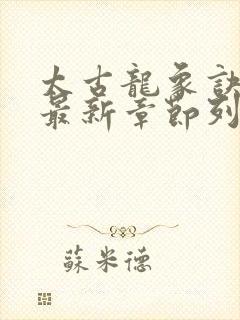 太古龍象訣
最新章節列
蘇米德